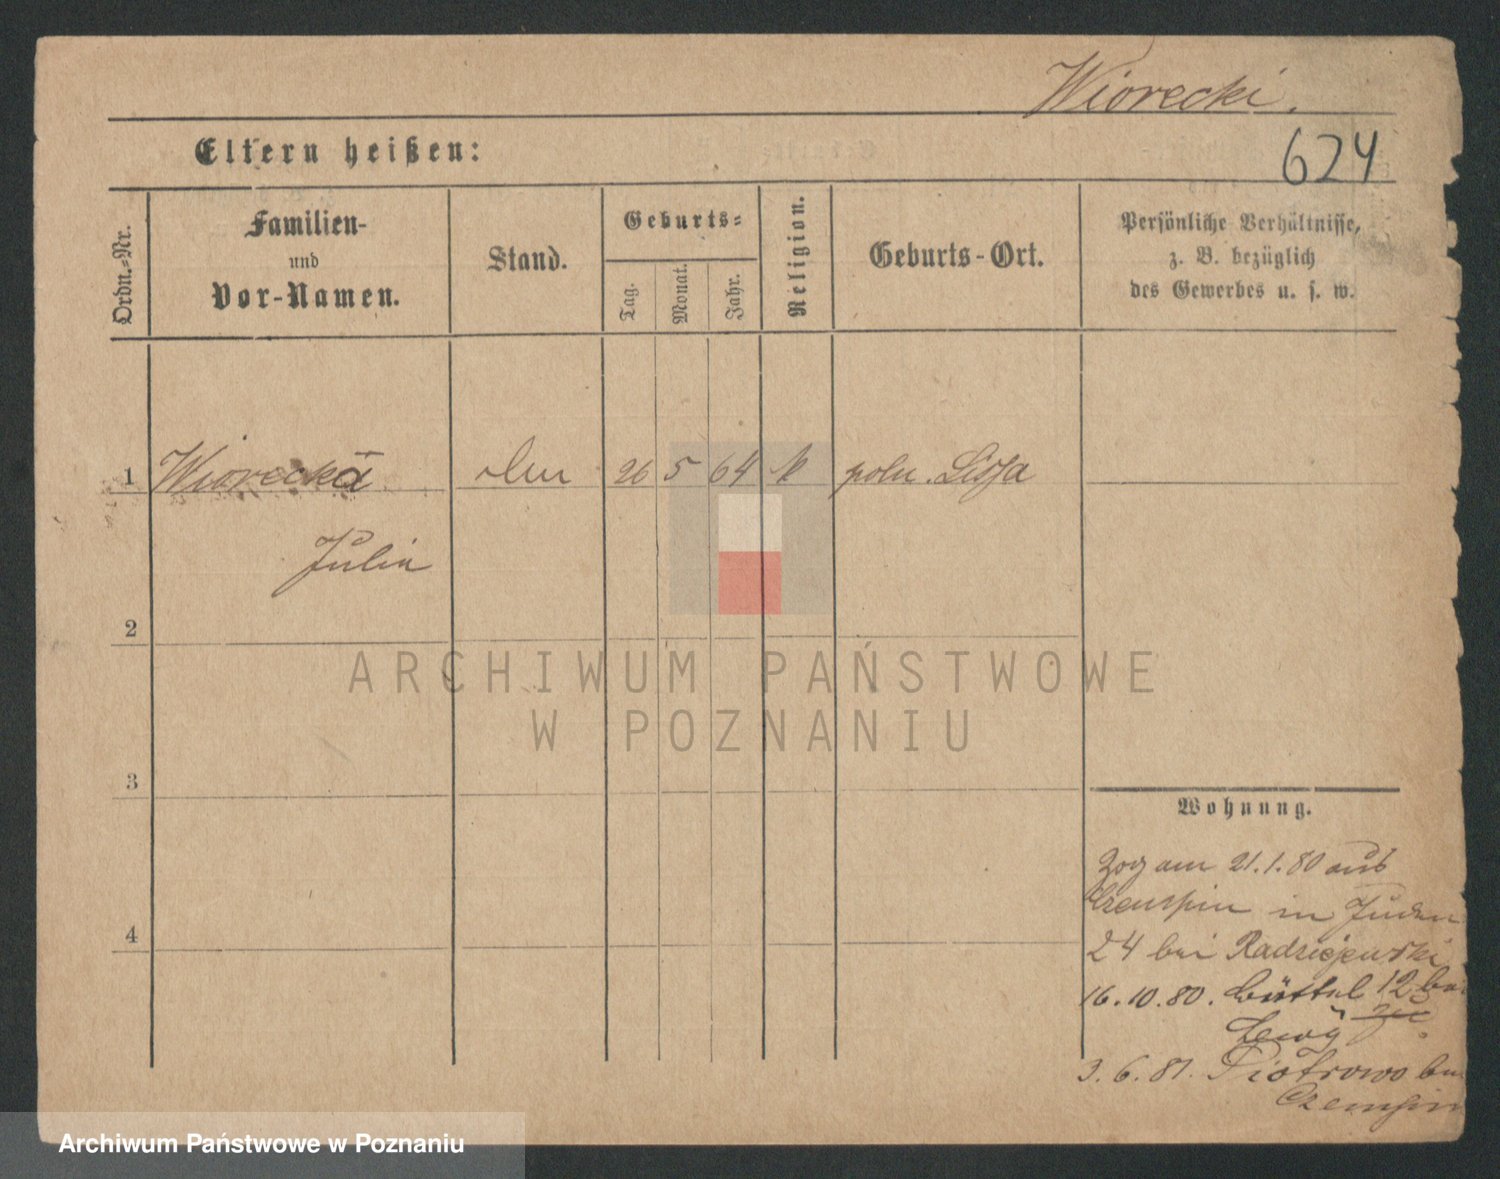 Wiorecki.
Eltern heißen:
624
Ordn.-Nr.
Familien-
und
Vor-Namen.
Stand.
Geburts-
Tag.
Monat.
Jahr.
Religion.
Geburts-Ort.
Persönliche Verhältnisse,
z. B. bezüglich
des Gewerbes u. s. w.
1 Wiorecka 26 5 64 k poln. Lissa
Julia
2
ARCHIWUM PAŃSTWOWE
W POZNANIU
3
Wohnung.
Zog am 21.1.80 aus
Czempin in Juden
4
24 bei Radziejewski
16.10.80. Büttel 12 bei
Lewy
3.6.81. Piotrowo bei
Czempin
Archiwum Państwowe w Poznaniu